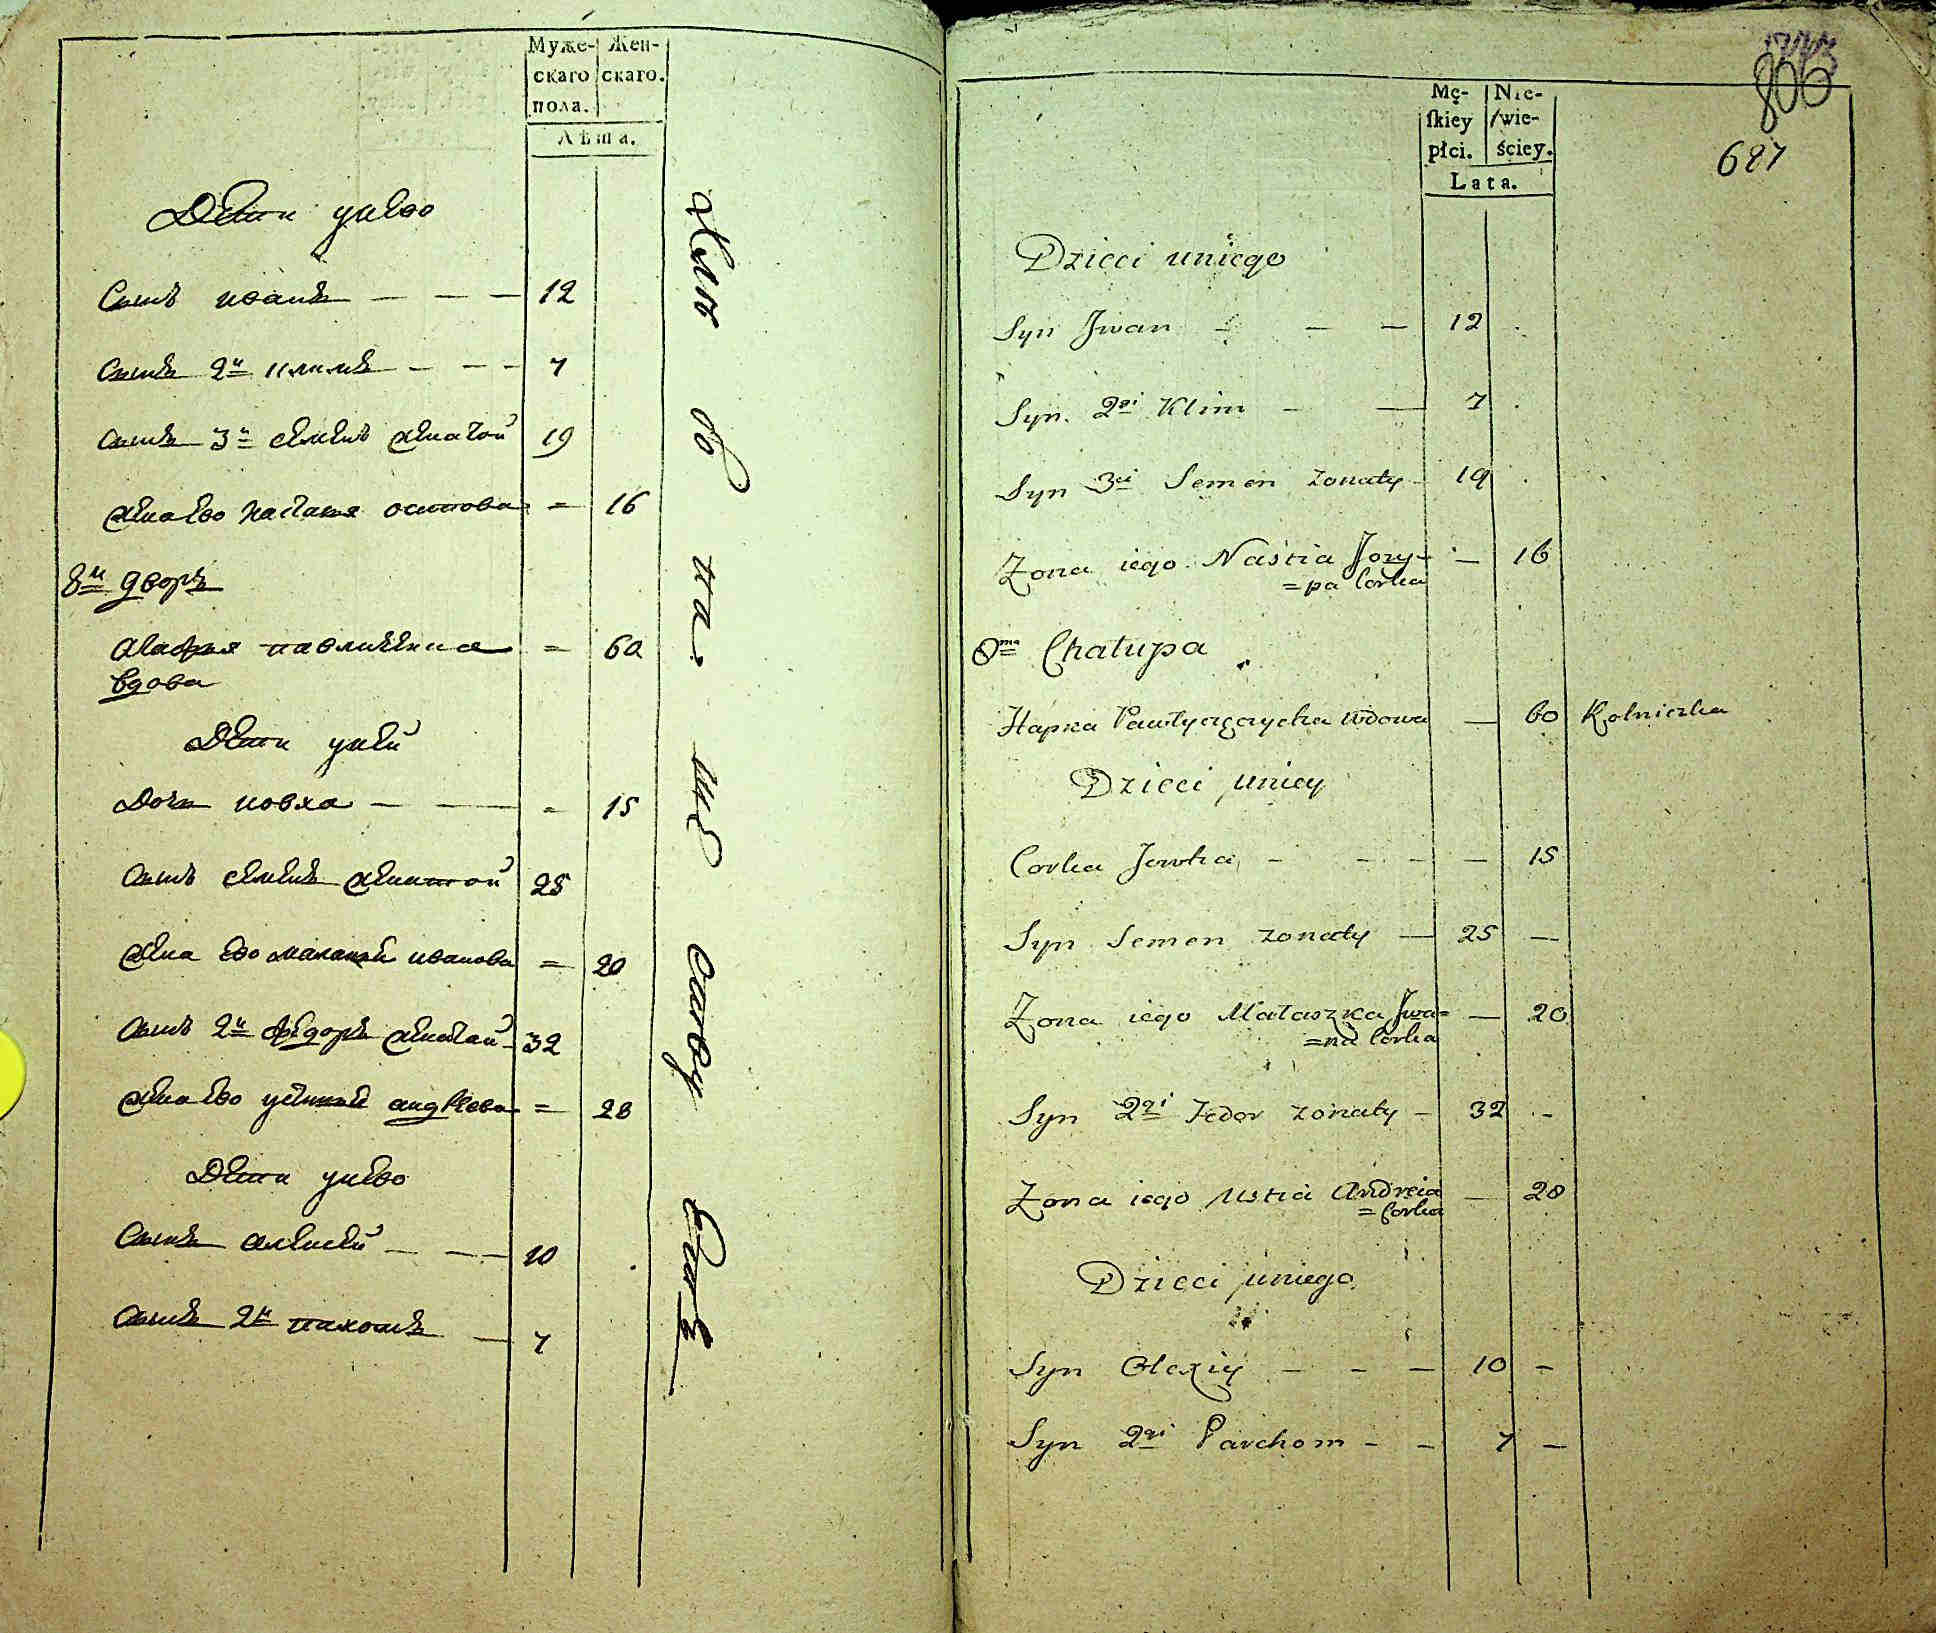 Муже- Жен-
скаго скаго.
пола.
Лѣта.
Дети унево
Сынъ иванъ — — — 12
Сынъ 2й климъ — — — 7
Сынъ 3й семенъ женатой 19
жена ево настася осипова = 16
8й дворъ
Агафья павличиха = 60
вдова
Дети уней
Дочь иовха — — = 15
Сынъ семенъ женатой 25
жена ево маланья иванова = 20
Сынъ 2й федоръ женатой 32
жена ево устинья андреева = 28
Дети унево
Сынъ алексей — — — 10
Сынъ 2й пахомъ — 7
806
687
Mę- Nie-
ſkiey wie-
płci. ściey.
Lata.
Dzieci uniego
Syn Jwan — — — 12
Syn 2gi Klim — — 7
Syn 3ci Semen zonaty 19
Zona iego Nastia Jozy= — 16
=pa Corka
8ma Chałupa
Hapka Pawłyczycha wdowa — 60 Rolniczka
Dzieci uniey
Corka Jewka — — — — 15
Syn Semen zonaty — 25 —
Zona iego Małaszka Jwa= — 20
=na Corka
Syn 2gi Fedor zonaty — 32 —
Zona iego Ustia Andreia — 28
=Corka
Dzieci uniego
Syn Olexiy — — — 10 —
Syn 2gi Parchom — — 7 —